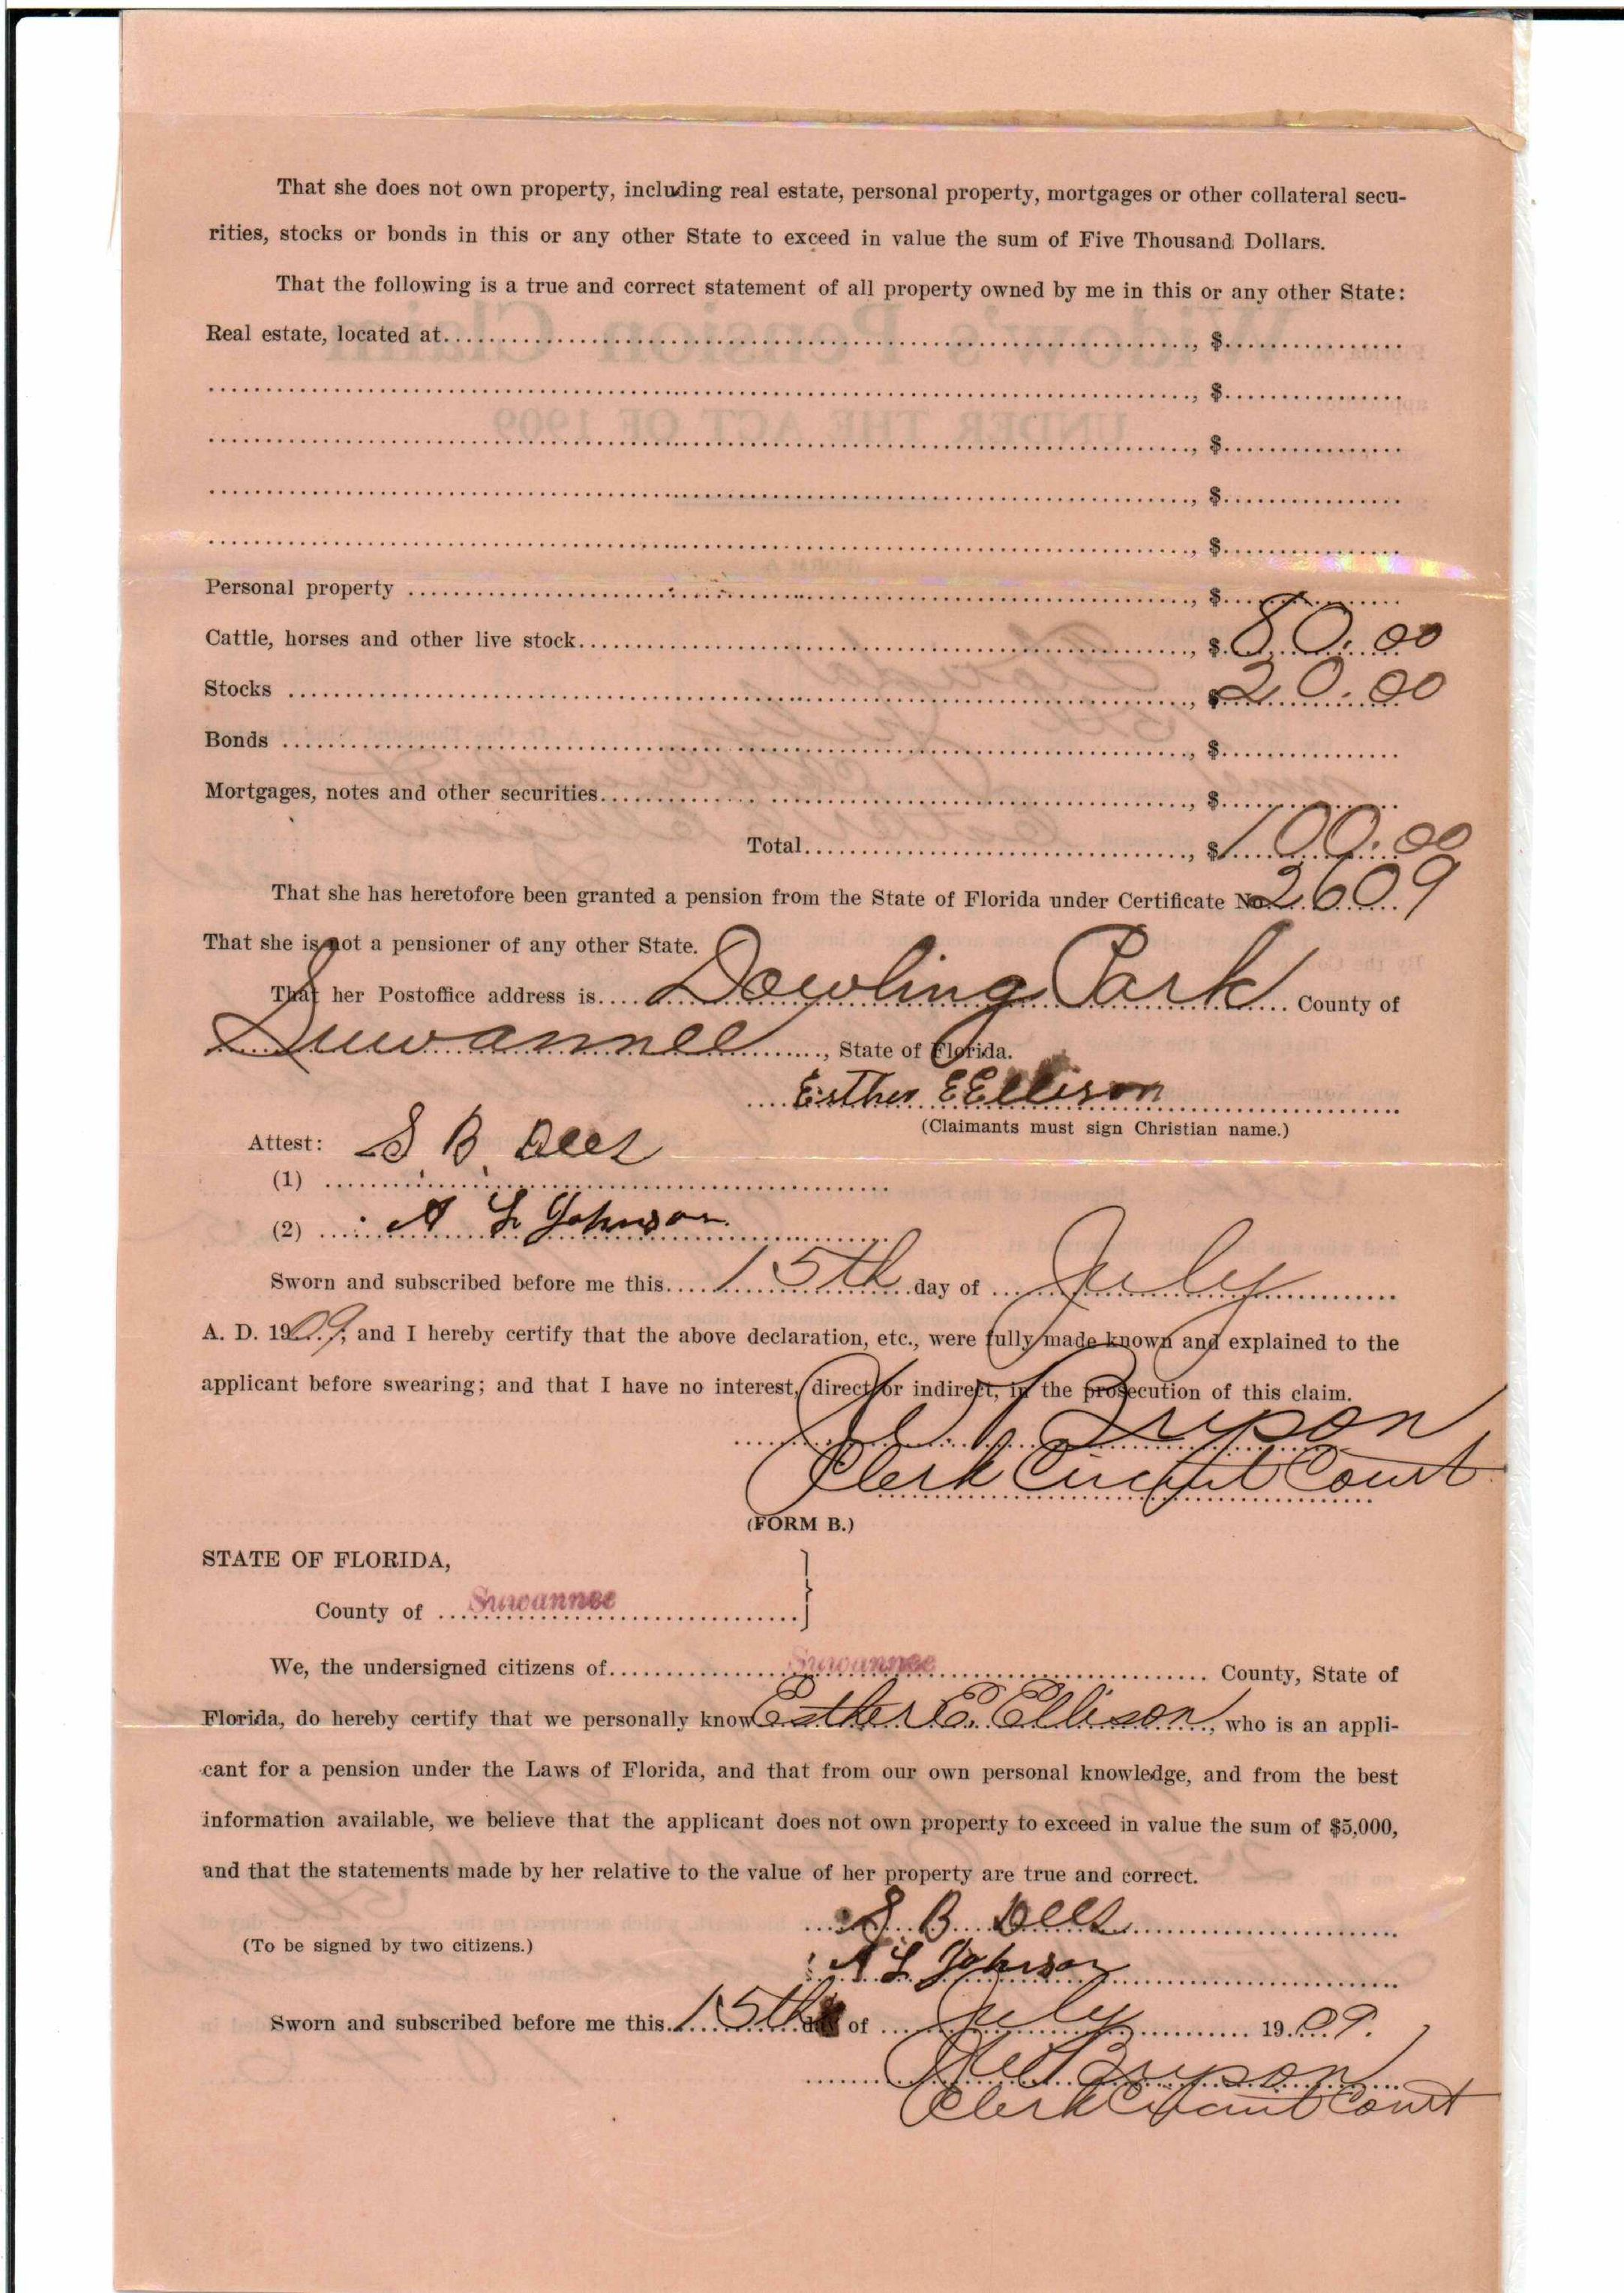 That she does not own property, including real estate, personal property, mortgages or other collateral secu-
rities, stocks or bonds in this or any other State to exceed in value the sum of Five Thousand Dollars.
That the following is a true and correct statement of all property owned by me in this or any other State:
Real estate, located at........, $........
........, $........
........, $........
........, $........
........, $........
Personal property ........, $........
Cattle, horses and other live stock........, $80.00
Stocks ........, $20.00
Bonds ........, $........
Mortgages, notes and other securities........, $........
Total........, $100.00
That she has heretofore been granted a pension from the State of Florida under Certificate No. 2609
That she is not a pensioner of any other State.
That her Postoffice address is.... Dowling Park .... County of
Suwannee ...., State of Florida.
Esther E Ellison
(Claimants must sign Christian name.)
Attest: S B Dees
(1) ........
(2) A L Johnson
Sworn and subscribed before me this.... 15th day of .... July
A. D. 1909, and I hereby certify that the above declaration, etc., were fully made known and explained to the
applicant before swearing; and that I have no interest, direct or indirect, in the prosecution of this claim.
Clerk Circuit Court
(FORM B.)
STATE OF FLORIDA,
County of .... Suwannee
We, the undersigned citizens of.... Suwannee .... County, State of
Florida, do hereby certify that we personally know Esther E. Ellison, who is an appli-
cant for a pension under the Laws of Florida, and that from our own personal knowledge, and from the best
information available, we believe that the applicant does not own property to exceed in value the sum of $5,000,
and that the statements made by her relative to the value of her property are true and correct.
S B Dees
(To be signed by two citizens.)
A L Johnson
Sworn and subscribed before me this.... 15th day of .... July .... 1909.
Clerk Circuit Court